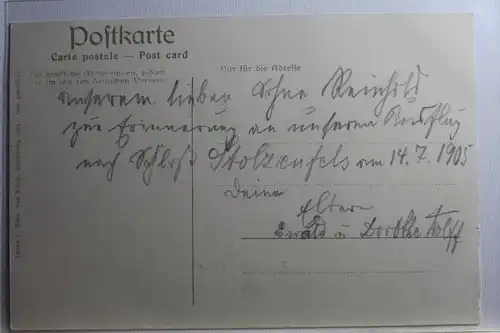 Postkarte
Carte postale — Post card
Nur für die Adresse
unserem lieben Sohne Reinhold
zur Erinnerung an unseren Ausflug
nach Schloß Stolzenfels am 14.7.1905
Deine
Eltern
Ewald u Dorothe Wolff